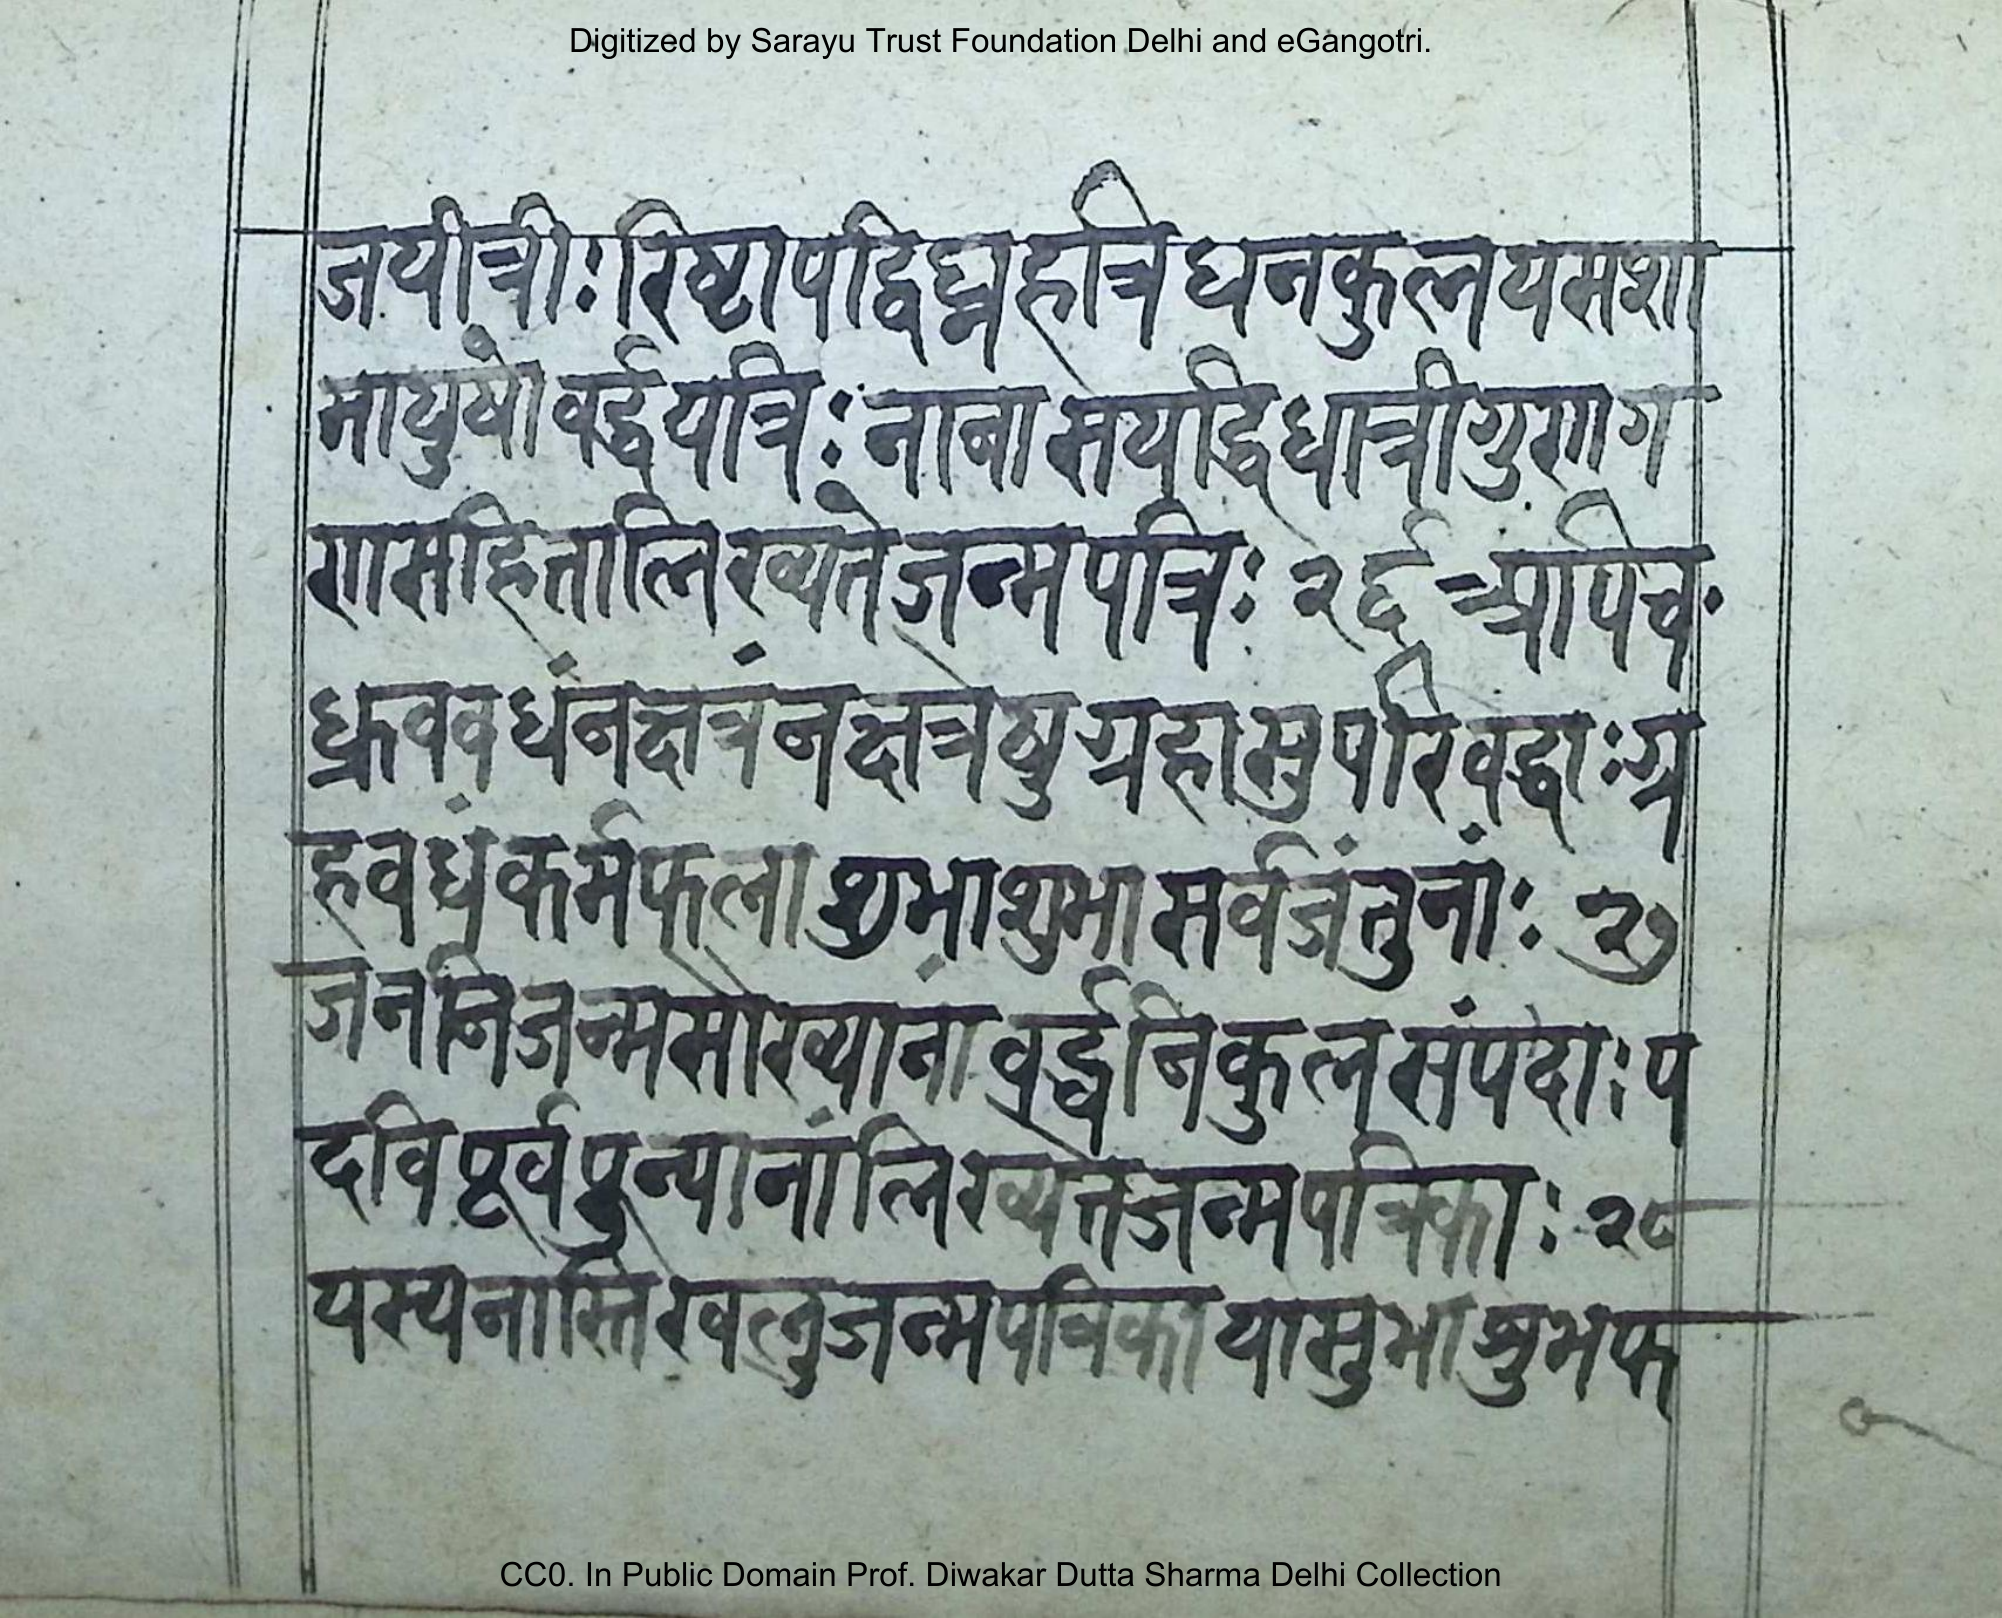 Digitized by Sarayu Trust Foundation Delhi and eGangotri.
जयीत्रीः रिष्टापद्विघ्नहत्रि धनकुलयमशा
मायुषो वर्द्धयत्रिः नाना सर्यद्धिधात्रीगुणग
णसहितालिख्यते जन्मपत्रिः २६ अपिच॰
ध्रुववधंनक्षत्रंनक्षत्रेषु ग्रहासुपरिवद्धाः ग्र
हवधंकर्मफला शुभाशुभा सर्वजंतुनांः २७
जननिजन्मसौख्यानां वर्द्धनिकुलसंपदाः प
दविपूर्वपुन्यानांलिख्यतेजन्मपत्रिकाः २८
यस्यनास्तिखलुजन्मपत्रिका यासुभाश्रुभफ
CC0. In Public Domain Prof. Diwakar Dutta Sharma Delhi Collection